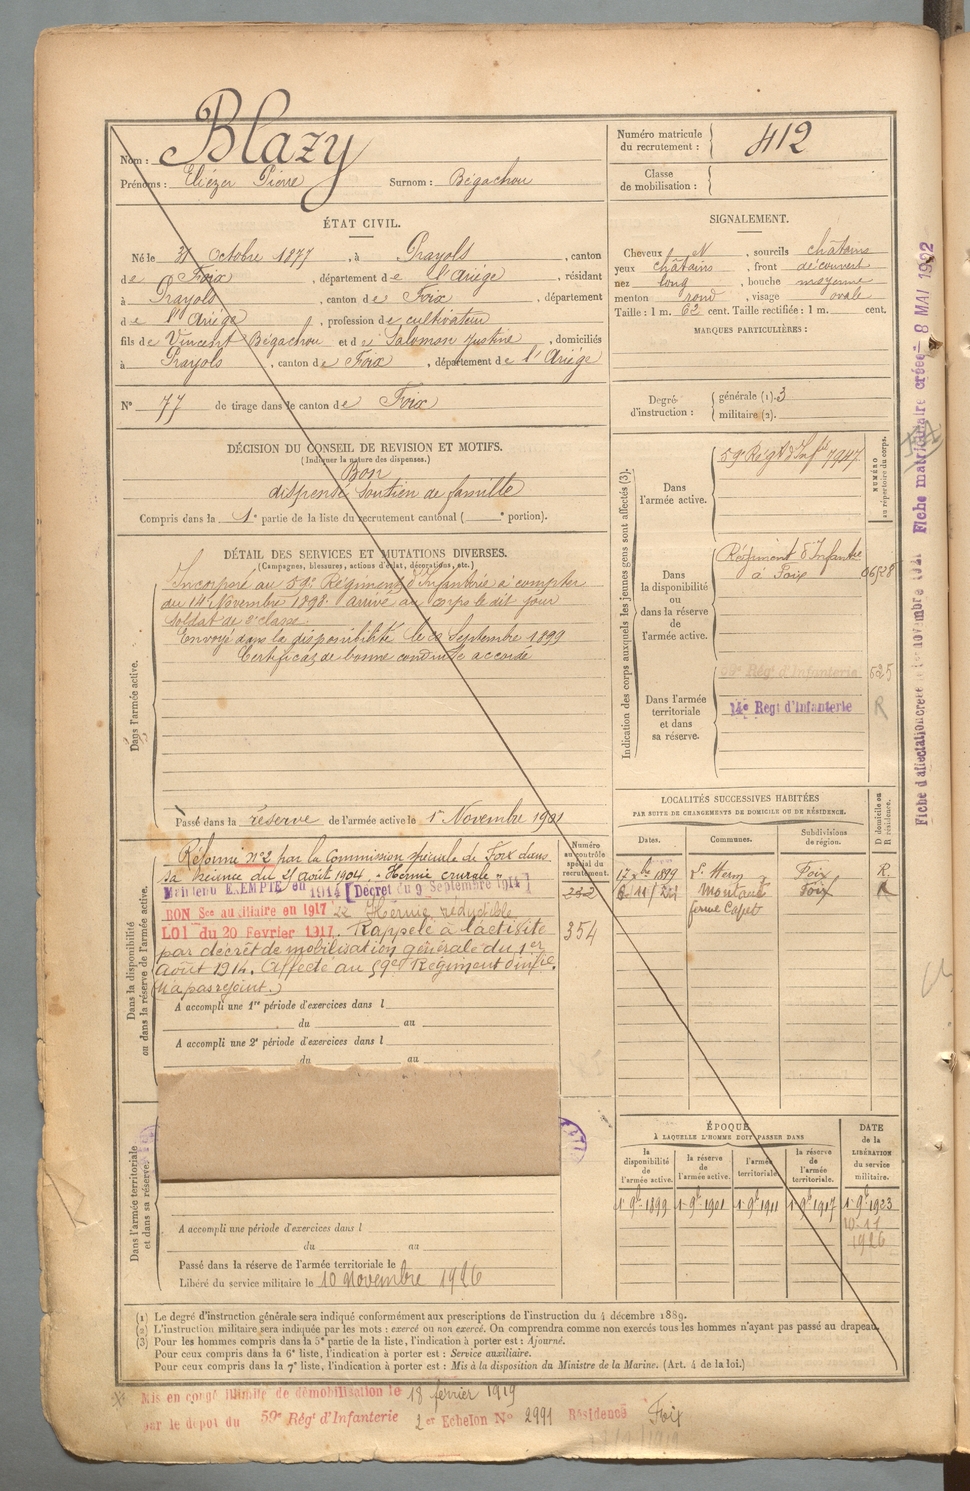 Nom : Blazy
Prénoms : Eliézer Pierre Surnom : Bégachou
Numéro matricule
du recrutement : 412
Classe
de mobilisation :
ÉTAT CIVIL.
Né le 31 Octobre 1877, à Prayols, canton
de Foix, département de l'Ariège, résidant
à Prayols, canton de Foix, département
de l'Ariège, profession de cultivateur
fils de Vincent Bégachou et de Salomon Justine, domiciliés
à Prayols, canton de Foix, département de l'Ariège
N° 77 de tirage dans le canton de Foix
SIGNALEMENT.
Cheveux N, sourcils châtains
yeux châtains, front découvert
nez long, bouche moyenne
menton rond, visage ovale
Taille : 1 m. 62 cent. Taille rectifiée : 1 m. cent.
MARQUES PARTICULIÈRES :
Degré
d'instruction :
générale (1). 3
militaire (2).
DÉCISION DU CONSEIL DE REVISION ET MOTIFS.
(Indiquer la nature des dispenses.)
Bon
dispensé soutien de famille
Compris dans la 1e partie de la liste du recrutement cantonal ( e portion).
DÉTAIL DES SERVICES ET MUTATIONS DIVERSES.
(Campagnes, blessures, actions d'éclat, décorations, etc.)
Dans l'armée active.
Incorporé au 59e Régiment d'Infanterie à compter
du 14 Novembre 1898. arrivé au corps le dit jour
soldat de 2e classe.
Envoyé dans la disponibilité le Septembre 1899
Certificat de bonne conduite accordé
Passé dans la réserve de l'armée active le 1r Novembre 1901
Indication des corps auxquels les jeunes gens sont affectés (3).
NUMÉRO
au répertoire du corps.
Dans
l'armée active.
59e Régt d'Inft 7947
Dans
la disponibilité
ou
dans la réserve
de
l'armée active.
Régiment d'Infantie
à Foix
06528
Dans l'armée
territoriale
et dans
sa réserve.
59e Régt d'Infanterie 525
14e Régt d'Infanterie R
LOCALITÉS SUCCESSIVES HABITÉES
PAR SUITE DE CHANGEMENTS DE DOMICILE OU DE RÉSIDENCE.
Dates. Communes. Subdivisions
de région.
D domicile ou
R résidence.
17 Xbre 1899 Foix R.
Montaut Foix R
ferme
Dans la disponibilité
ou dans la réserve de l'armée active.
Numéro
au contrôle
spécial du
recrutement.
232
354
Réformé n°2 par la Commission spéciale de Foix dans
sa séance du 21 août 1904. « Hernie crurale »
Maintenu EXEMPTÉ en 1914 [Décret du 9 Septembre 1914]
BON Sce auxiliaire en 1917 Hernie réductible
LOI du 20 Fevrier 1917. Rappelé à l'activité
par décret de mobilisation générale du 1er
Août 1914. Affecté au 59e Régiment d'infie.
(n'a pas rejoint.)
A accompli une 1re période d'exercices dans l
du au
A accompli une 2e période d'exercices dans l
du au
Dans l'armée territoriale
et dans sa réserve.
A accompli une période d'exercices dans l
du au
Passé dans la réserve de l'armée territoriale le
Libéré du service militaire le 10 Novembre 1926
ÉPOQUE
À LAQUELLE L'HOMME DOIT PASSER DANS
la
disponibilité
de
l'armée active.
la réserve
de
l'armée active.
l'armée
territoriale.
la réserve
de
l'armée
territoriale.
DATE
de la
LIBÉRATION
du service
militaire.
1r 9b 1899 1r 9b 1901 1r 9b 1911 1r 9b 1917 1r 9b 1923
10-11
1926
(1) Le degré d'instruction générale sera indiqué conformément aux prescriptions de l'instruction du 4 décembre 1889.
(2) L'instruction militaire sera indiquée par les mots : exercé ou non exercé. On comprendra comme non exercés tous les hommes n'ayant pas passé au drapeau.
(3) Pour les hommes compris dans la 5e partie de la liste, l'indication à porter est : Ajourné.
Pour ceux compris dans la 6e liste, l'indication à porter est : Service auxiliaire.
Pour ceux compris dans la 7e liste, l'indication à porter est : Mis à la disposition du Ministre de la Marine. (Art. 4 de la loi.)
Mis en congé illimité de démobilisation le 18 fevrier 1919
par le dépot du 59e Régt d'Infanterie 2er Echelon N° 2991 Résidence Foix
Fiche matriculaire créée 8 MAI 1922
Fiche d'affectation créée novembre